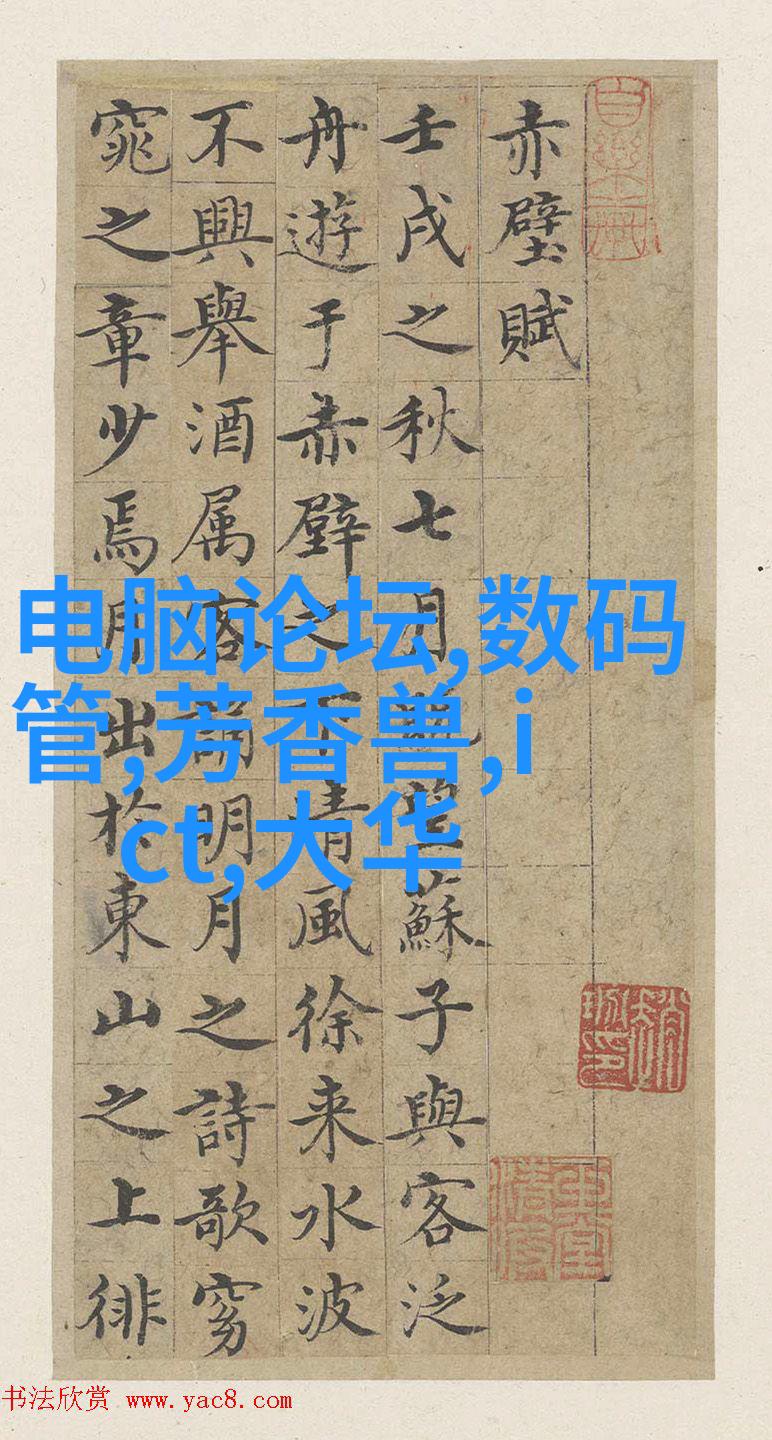 赤壁賦
壬戌之秋七月既望蘇子與客泛
舟遊于赤壁之下清風徐来水波
不興舉酒属客誦明月之詩歌窈
窕之章少焉月出於東山之上徘
电脑论坛,数码
管,芳香兽,i
ct,大华
书法欣赏 www.yac8.com